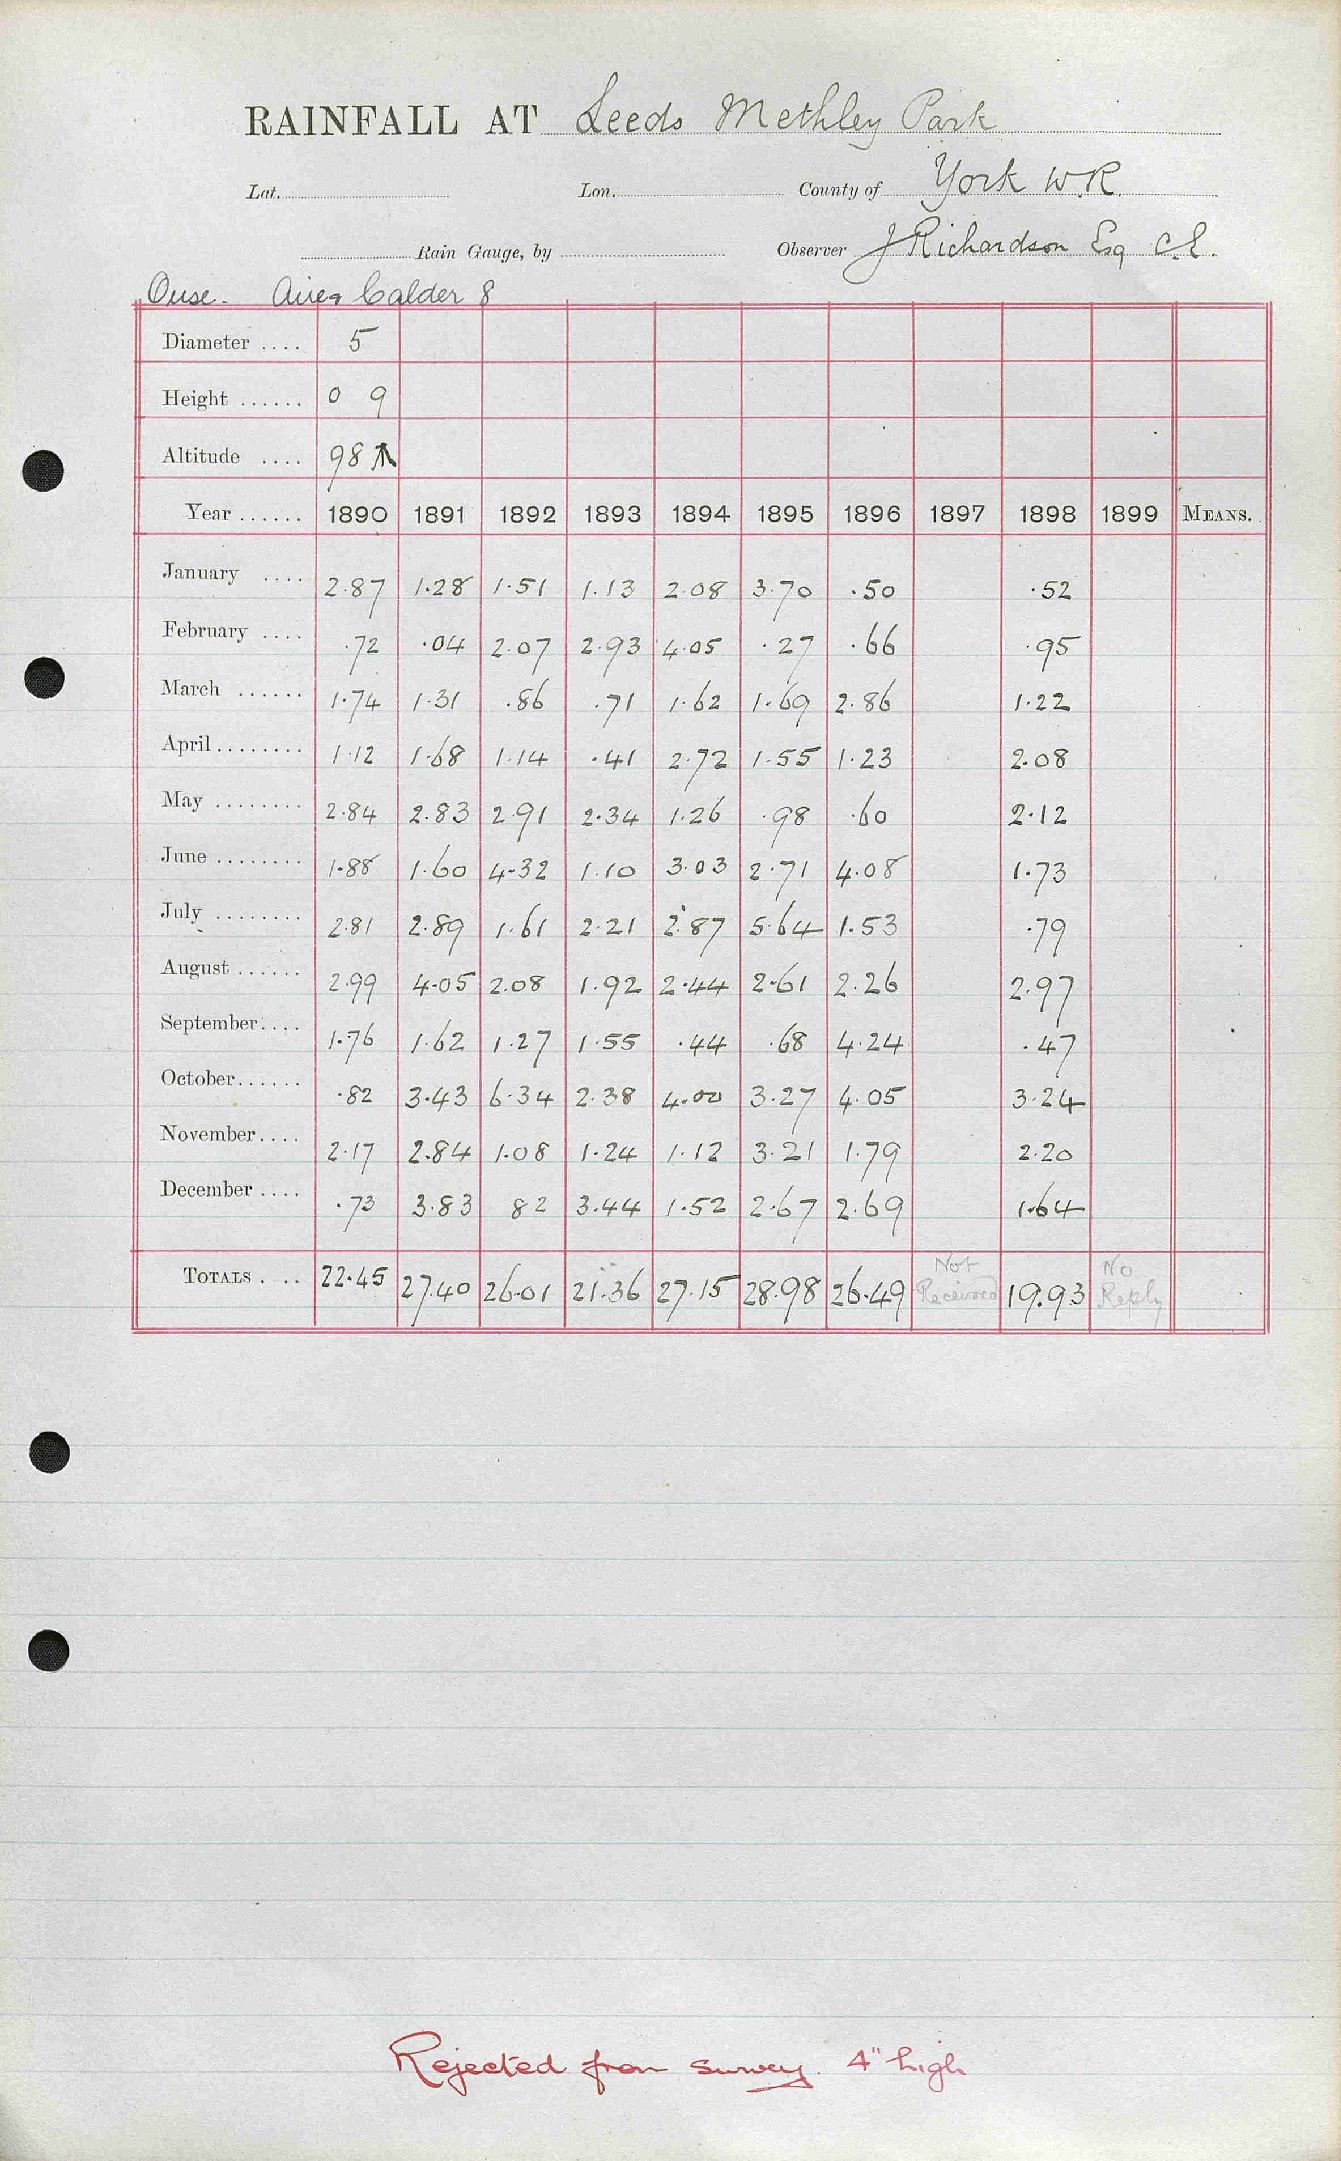 RAINFALL AT Leeds Methley Park
Lat. Lon. County of York W.R.
Rain Gauge, by Observer J Richardson Esq C.E.
Ouse. Aire & Calder 8
Diameter .... 5
Height ...... 0 9
Altitude .... 98
Year ...... 1890 1891 1892 1893 1894 1895 1896 1897 1898 1899 MEANS.
January .... 2.87 1.28 1.51 1.13 2.08 3.70 .50 .52
February .... .72 .04 2.07 2.93 4.05 .27 .66 .95
March ...... 1.74 1.31 .86 .71 1.62 1.69 2.86 1.22
April ........ 1.12 1.68 1.14 .41 2.72 1.55 1.23 2.08
May ........ 2.84 2.83 2.91 2.34 1.26 .98 .60 2.12
June ........ 1.88 1.60 4.32 1.10 3.03 2.71 4.08 1.73
July ........ 2.81 2.89 1.61 2.21 2.87 5.64 1.53 .79
August ...... 2.99 4.05 2.08 1.92 2.44 2.61 2.26 2.97
September.... 1.76 1.62 1.27 1.55 .44 .68 4.24 .47
October...... .82 3.43 6.34 2.38 4.00 3.27 4.05 3.24
November.... 2.17 2.84 1.08 1.24 1.12 3.21 1.79 2.20
December .... .73 3.83 82 3.44 1.52 2.67 2.69 1.64
TOTALS .... 22.45 27.40 26.01 21.36 27.15 28.98 26.49 Not Received 19.93 No Reply
Rejected from survey. 4" high